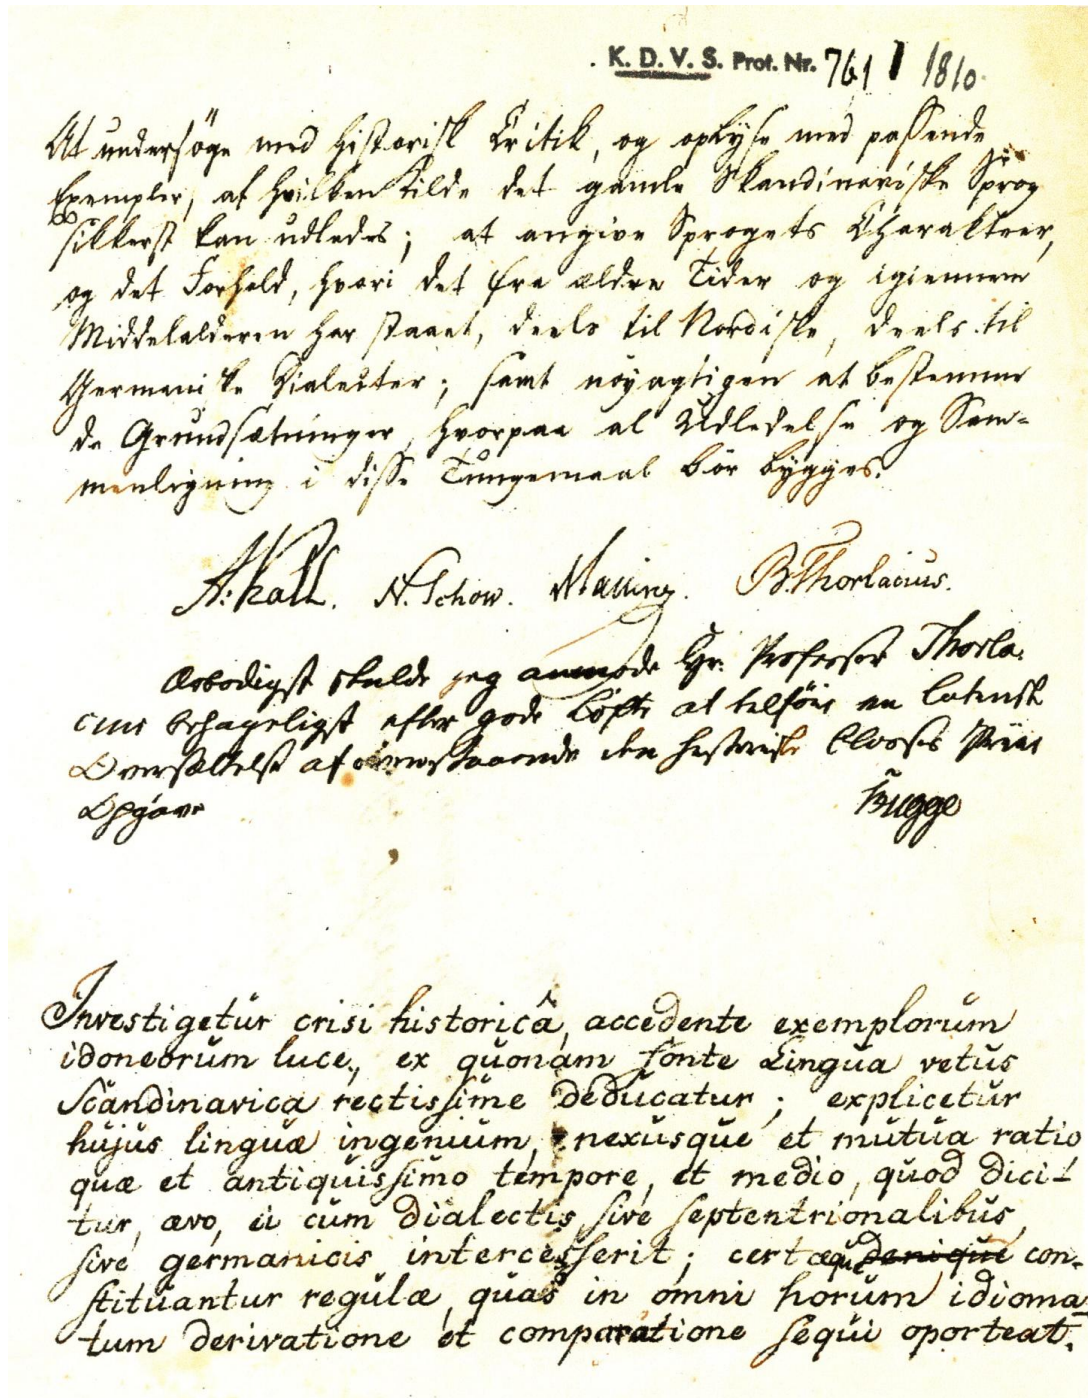 K. D. V. S. Prot. Nr. 761 1810.
At undersöge med historisk Critik, og oplyse med passende
Exempler, af hvilken Kilde det gamle Skandinaviske Sprog
sikkerst kan udledes; at angive Sprogets Charakteer,
og det Forhold, hvori det fra ældre Tider og igiennem
Middelalderen har staaet, deels til Nordiske, deels til
Germaniske Dialecter; samt nöyagtigen at bestemme
de Grundsætninger, hvorpaa al Udledelse og Sam-
menligning i disse Tungemaal bör bygges.
A: Kall. N. Schow. B. Thorlacius.
Ærbödigst skulde jeg anmode Hr. Professor Thorla-
cius behageligst efter gode Löfte at tilföie en latinsk
Oversættelse af ovenstaaende den historiske Classes Priis
Opgave
Bugge
Investigetur crisi historicâ, accedente exemplorum
idoneorum luce, ex quonam fonte Lingua vetus
Scandinavica rectissime deducatur; explicetur
hujus linguæ ingenium, nexusque et mutua ratio
quæ et antiquissimo tempore, et medio, quod dici-
tur, ævo, ei cum dialectis, sive septentrionalibus,
sive germanicis intercesserit; certæque denique con-
stituantur regulæ, quas in omni horum idioma-
tum derivatione et comparatione sequi oporteat.